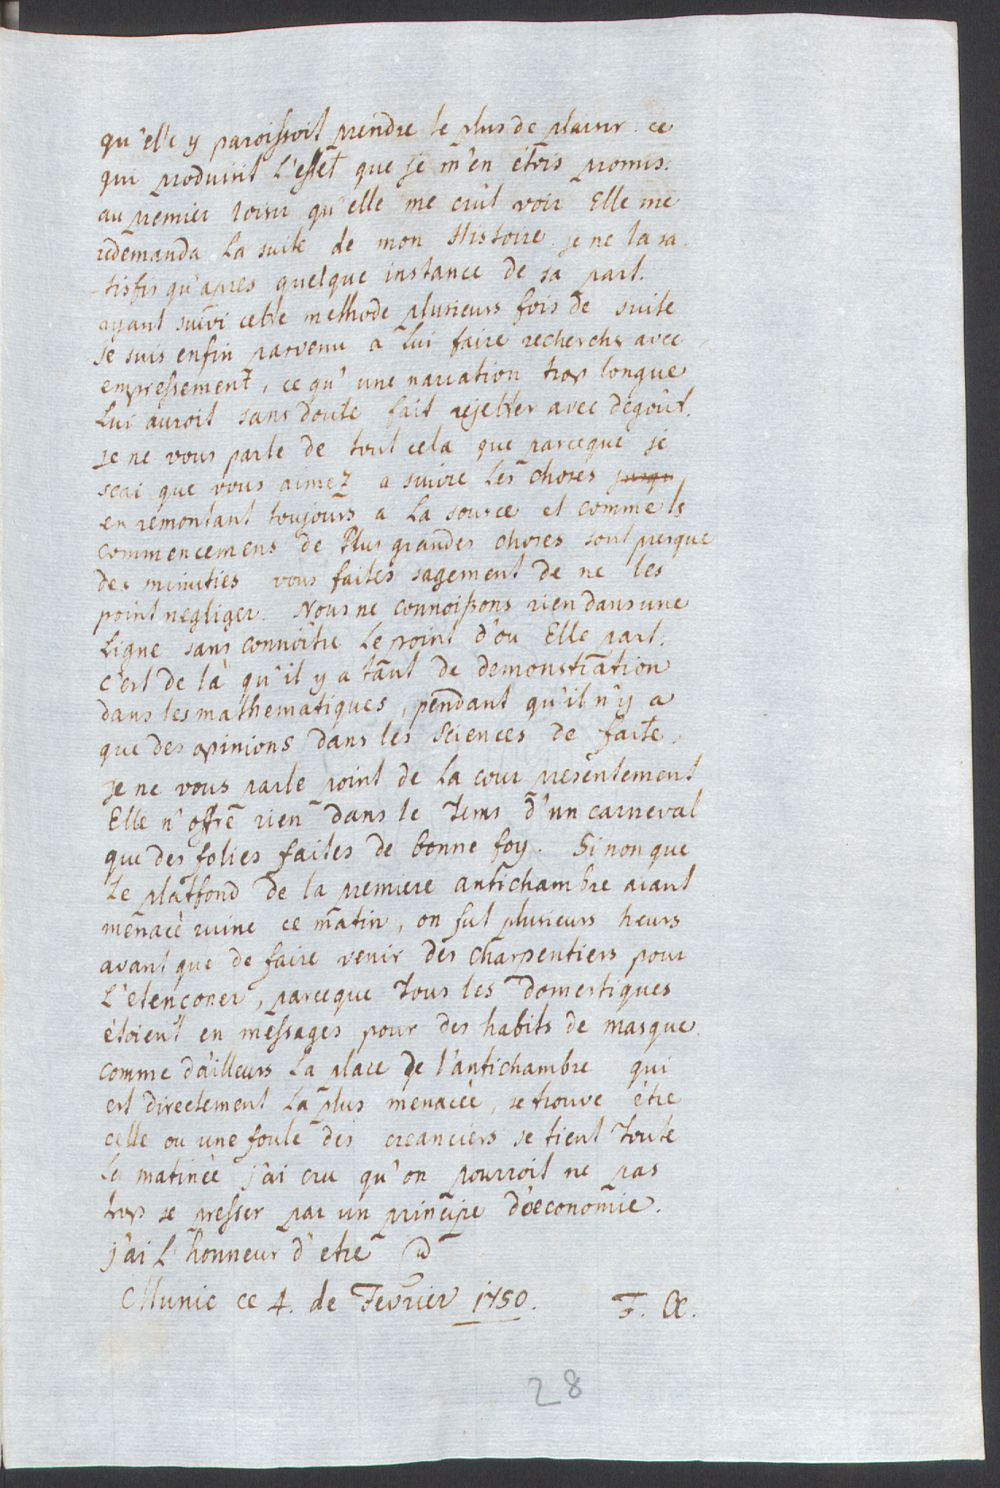 qu'elle y paroissoit prendre le plus de plaisir. ce
qui produisit L'effet que je m'en étois promis.
au premier loisir qu'elle me crût voir Elle me
redemanda La suite de mon Histoire. je ne la sa-
-tisfis qu'apres quelque instance de sa part.
ayant suivi cette methode plusieurs fois de suite
je suis enfin parvenu a Lui faire recherche avec
empressement, ce qu'une narration trop longue
Lui auroit sans doute fait rejetter avec degoût.
je ne vous parle de tout cela que parceque je
scai que vous aimez a suivre Les choses jusqu
en remontant toujours a La source et comme ls
commencemens de Plus grandes choses sont presque
des minuties vous faites sagement de ne les
point negliger. Nous ne connoissons rien dans une
Ligne sans connoître Le point d'ou Elle part.
c'est de là qu'il y a tant de demonstration
dans les mathematiques, pendant qu'il n'y a
que des opinions dans les Sciences de faite.
je ne vous parle point de La cour presentement
Elle n'offre rien dans le Tems d'un carneval
que des folies faites de bonne foy. Sinon que
Le platfond de la premiere antichambre aiant
menacè ruine ce matin, on fut plusieurs heurs
avant que de faire venir des Charpentiers pour
L'etençoner, parceque Tous les Domestiques
étoient en messages pour des habits de masque.
comme d'ailleurs La place de l'antichambre qui
est directement La plus menacée, se trouve être
celle ou une foule des creanciers se tient Toute
La matinée j'ai cru qu'on pourroit ne pas
trop se presser par un principe d'oeconomie.
j'ai L'honneur d'etre
Munic ce 4. de Fevrier 1750. F. X.
28